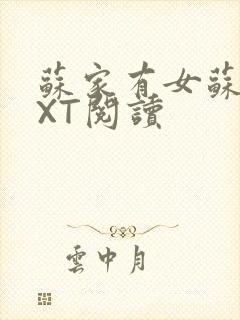 蘇家有女蘇
XT閱讀
雲中月